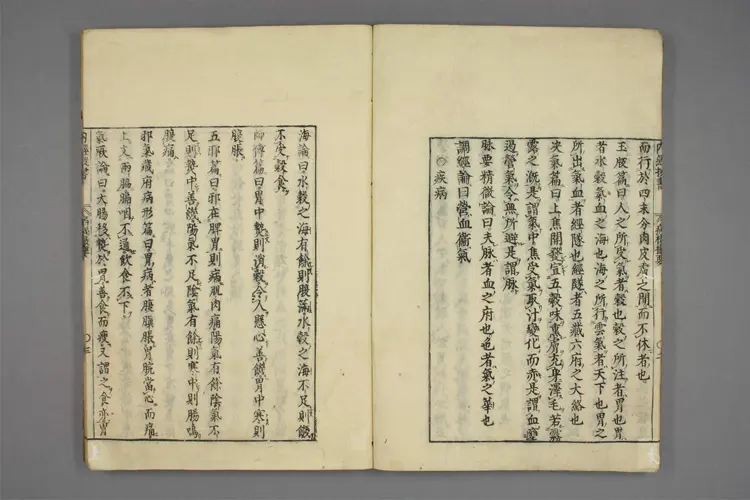 而行於四末分肉皮膚之間而不休者也
玉版篇曰人之所受氣者穀也穀之所注者胃也胃
者水穀氣血之海也海之所行雲氣者天下也胃之
所出氣血者經隧也經隧者五藏六府之大絡也
決氣篇曰上焦開發宣五穀味熏膚充身澤毛若霧
露之漑是謂氣中焦受氣取汁變化而赤是謂血壅
遏營氣令無所避是謂脉
脉要精微論曰夫脉者血之府也色者氣之華也
調經論曰營血衞氣
○疾病
海論曰水穀之海有餘則腹滿水穀之海不足則饑
不受穀食
師傳篇曰胃中熱則消穀令人懸心善饑胃中寒則
腹脹
五邪篇曰邪在脾胃則病肌肉痛陽氣有餘陰氣不
足則熱中善饑陽氣不足陰氣有餘則寒中則腸鳴
腹痛
邪氣藏府病形篇曰胃病者腹䐜脹胃脘當心而痛
上支兩脇膈咽不通飲食不下
氣厥論曰大腸移熱於胃善食而瘦又謂之食亦胃